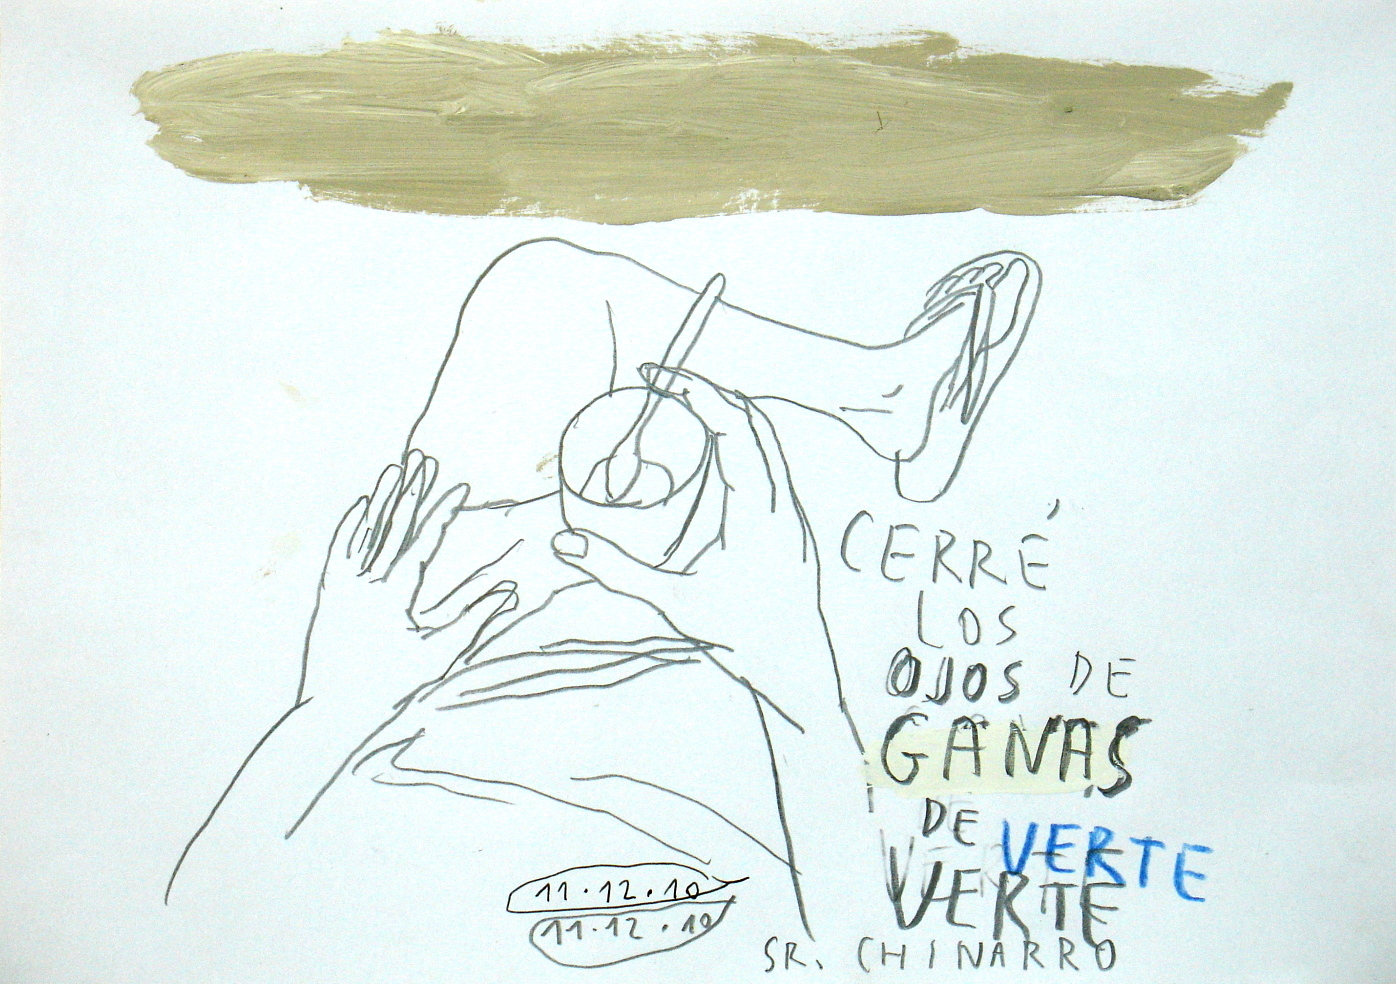 CERRÉ
LOS
OJOS DE
GANAS
DE VERTE
VERTE
11.12.10
11.12.10
SR. CHINARRO